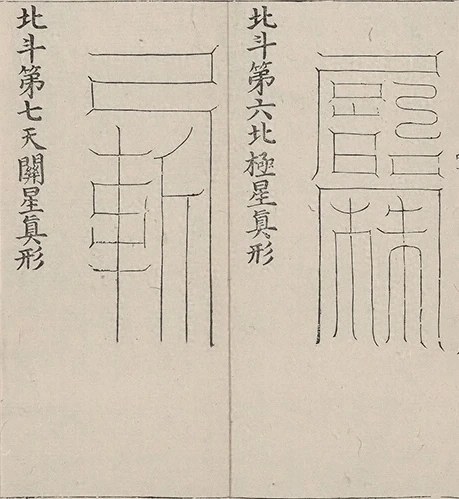 北斗第六北極星真形
北斗第七天關星真形